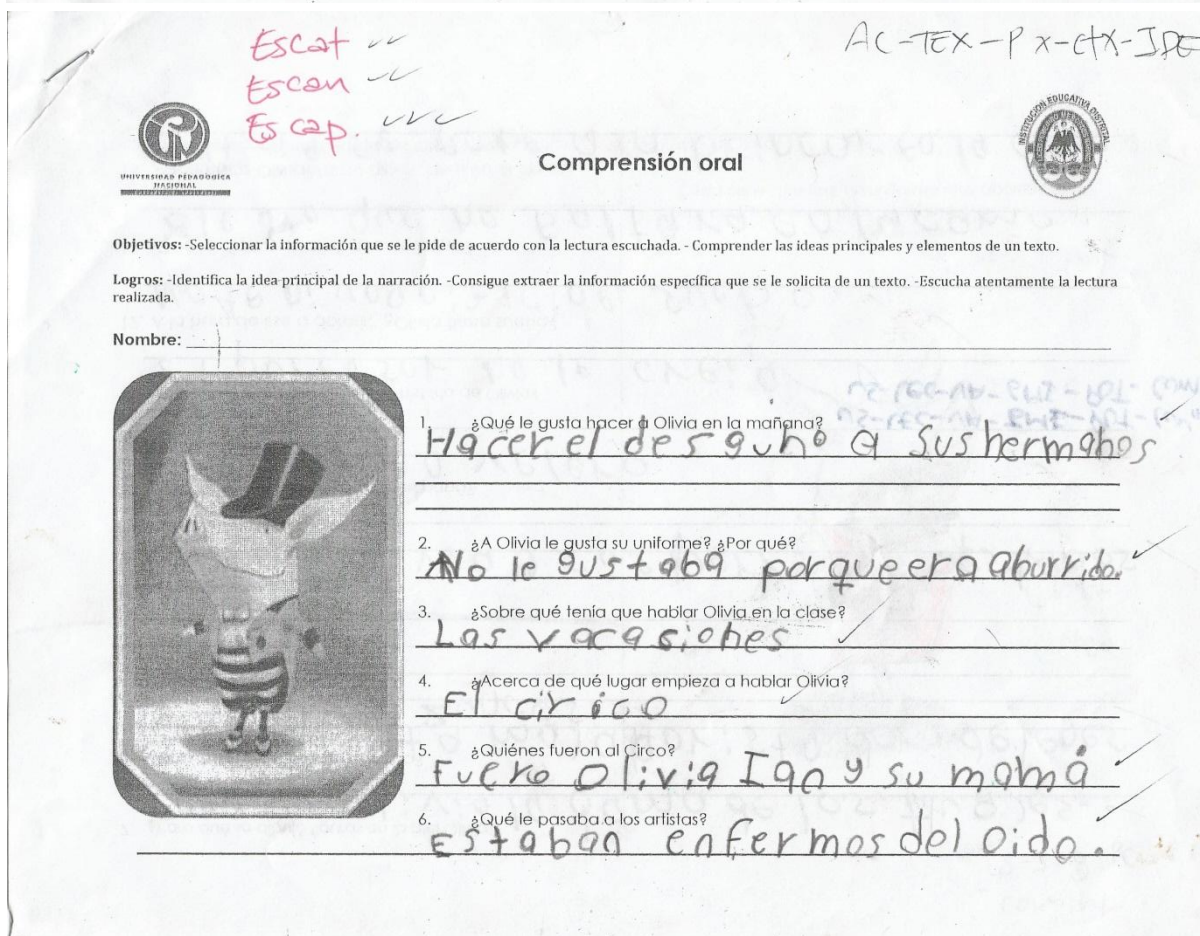 Escat
AC-TEX-PX-CTX-IDE
Escan
Escap.
UNIVERSIDAD PEDAGOGICA
NACIONAL
INSTITUCIÓN EDUCATIVA DISTRITAL
Comprensión oral
Objetivos: -Seleccionar la información que se le pide de acuerdo con la lectura escuchada. - Comprender las ideas principales y elementos de un texto.
Logros: -Identifica la idea principal de la narración. -Consigue extraer la información específica que se le solicita de un texto. -Escucha atentamente la lectura
realizada.
Nombre:
1. ¿Qué le gusta hacer a Olivia en la mañana?
Hacer el desaunno a sus hermanos
2. ¿A Olivia le gusta su uniforme? ¿Por qué?
No le gustaba porque era aburrido.
3. ¿Sobre qué tenía que hablar Olivia en la clase?
Las vacasiones
4. ¿Acerca de qué lugar empieza a hablar Olivia?
El cirico
5. ¿Quiénes fueron al Circo?
Fuero Olivia Ian y su mamá
6. ¿Qué le pasaba a los artistas?
Estaban enfermos del oido.